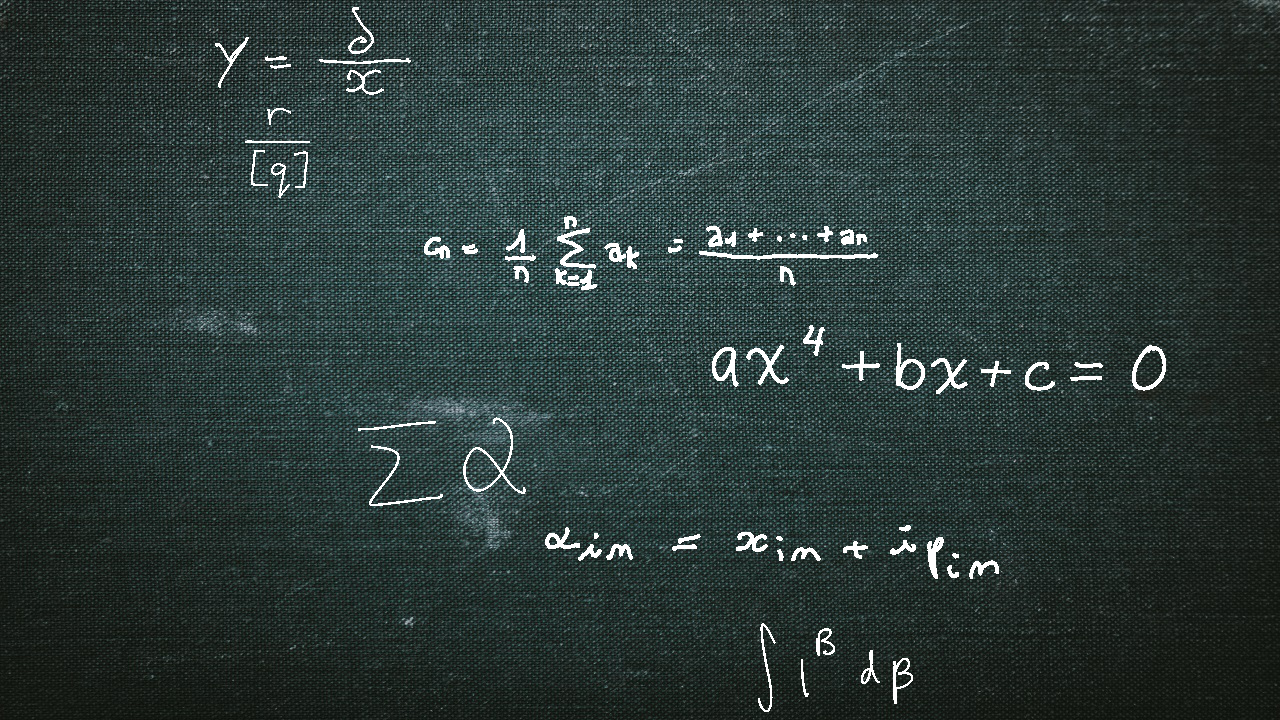 Y = ∂/x
r/[q]
cₙ = 1/n ∑ₖ₌₁ⁿ aₖ = (a₁ + ... + aₙ)/n
ax⁴ + bx + c = 0
∑ α
α_{im} = x_{im} + i p_{im}
∫ 1^β dβ